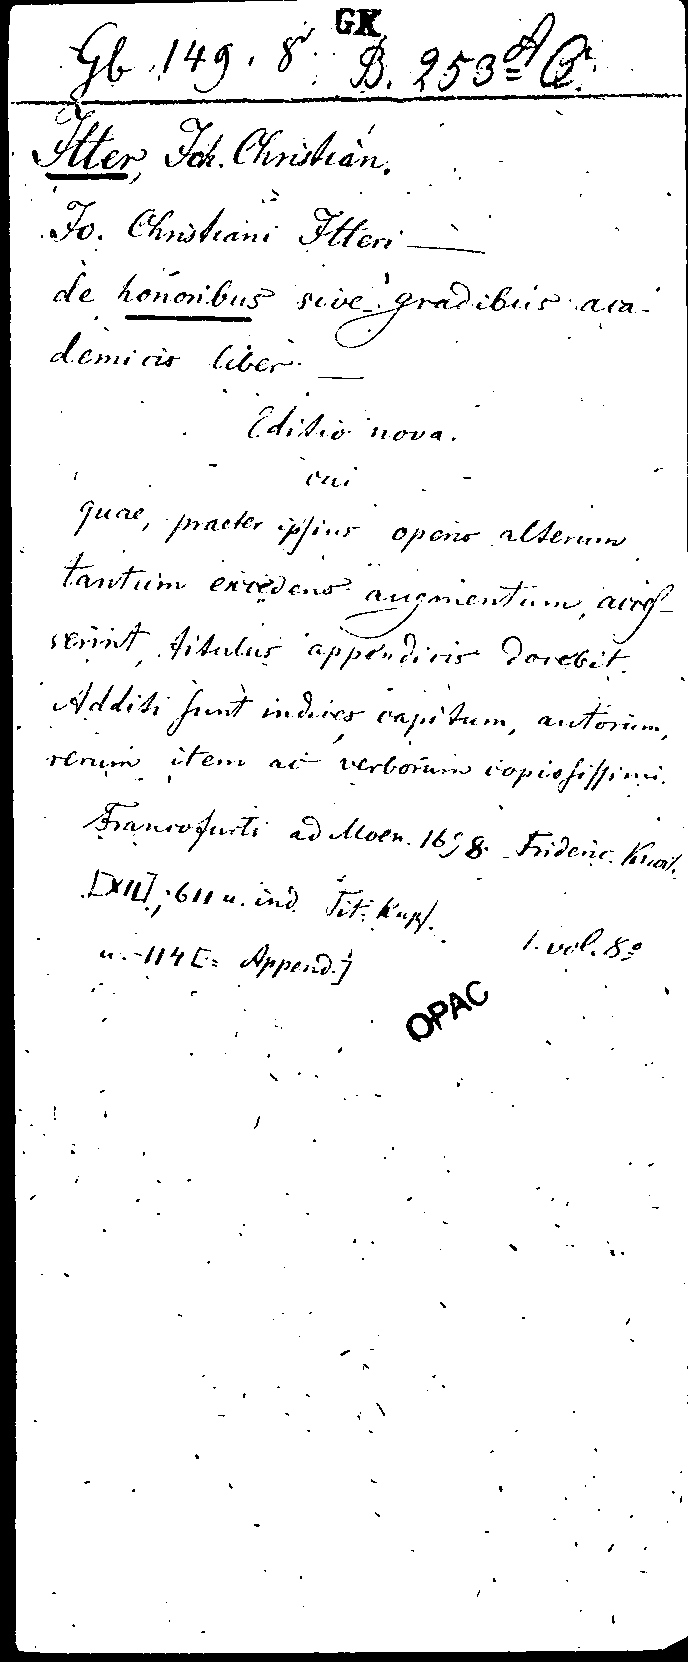 GK
Gb 149. 8° B. 253
Itter, Joh. Christian.
Jo. Christiani Itteri —
de honoribus sive gradibus aca-
demicis liber —
Editio nova.
cui
quae, praeter ipsius operis alterum
tantum excedens augmentum, acces-
serint, titulus appendicis docebit.
Additi sunt indices capitum, autorum,
rerum item ac verborum copiosissimi.
Francofurti ad Moen. 1698. Frideric. Knoch.
[XII], 611 u. ind. Tit. Kupf.
u. 114 [= Append.]
1. vol. 8°
OPAC